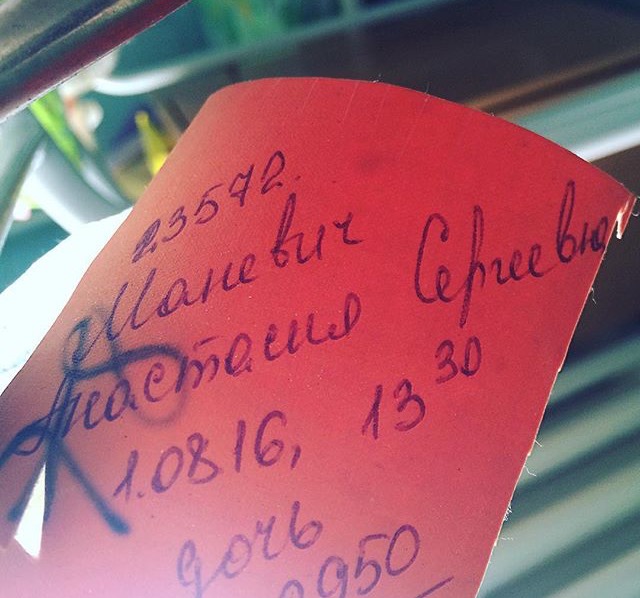 23572.
Маневич
Анастасия Сергеевна
1.08.16, 13 30
дочь
2950